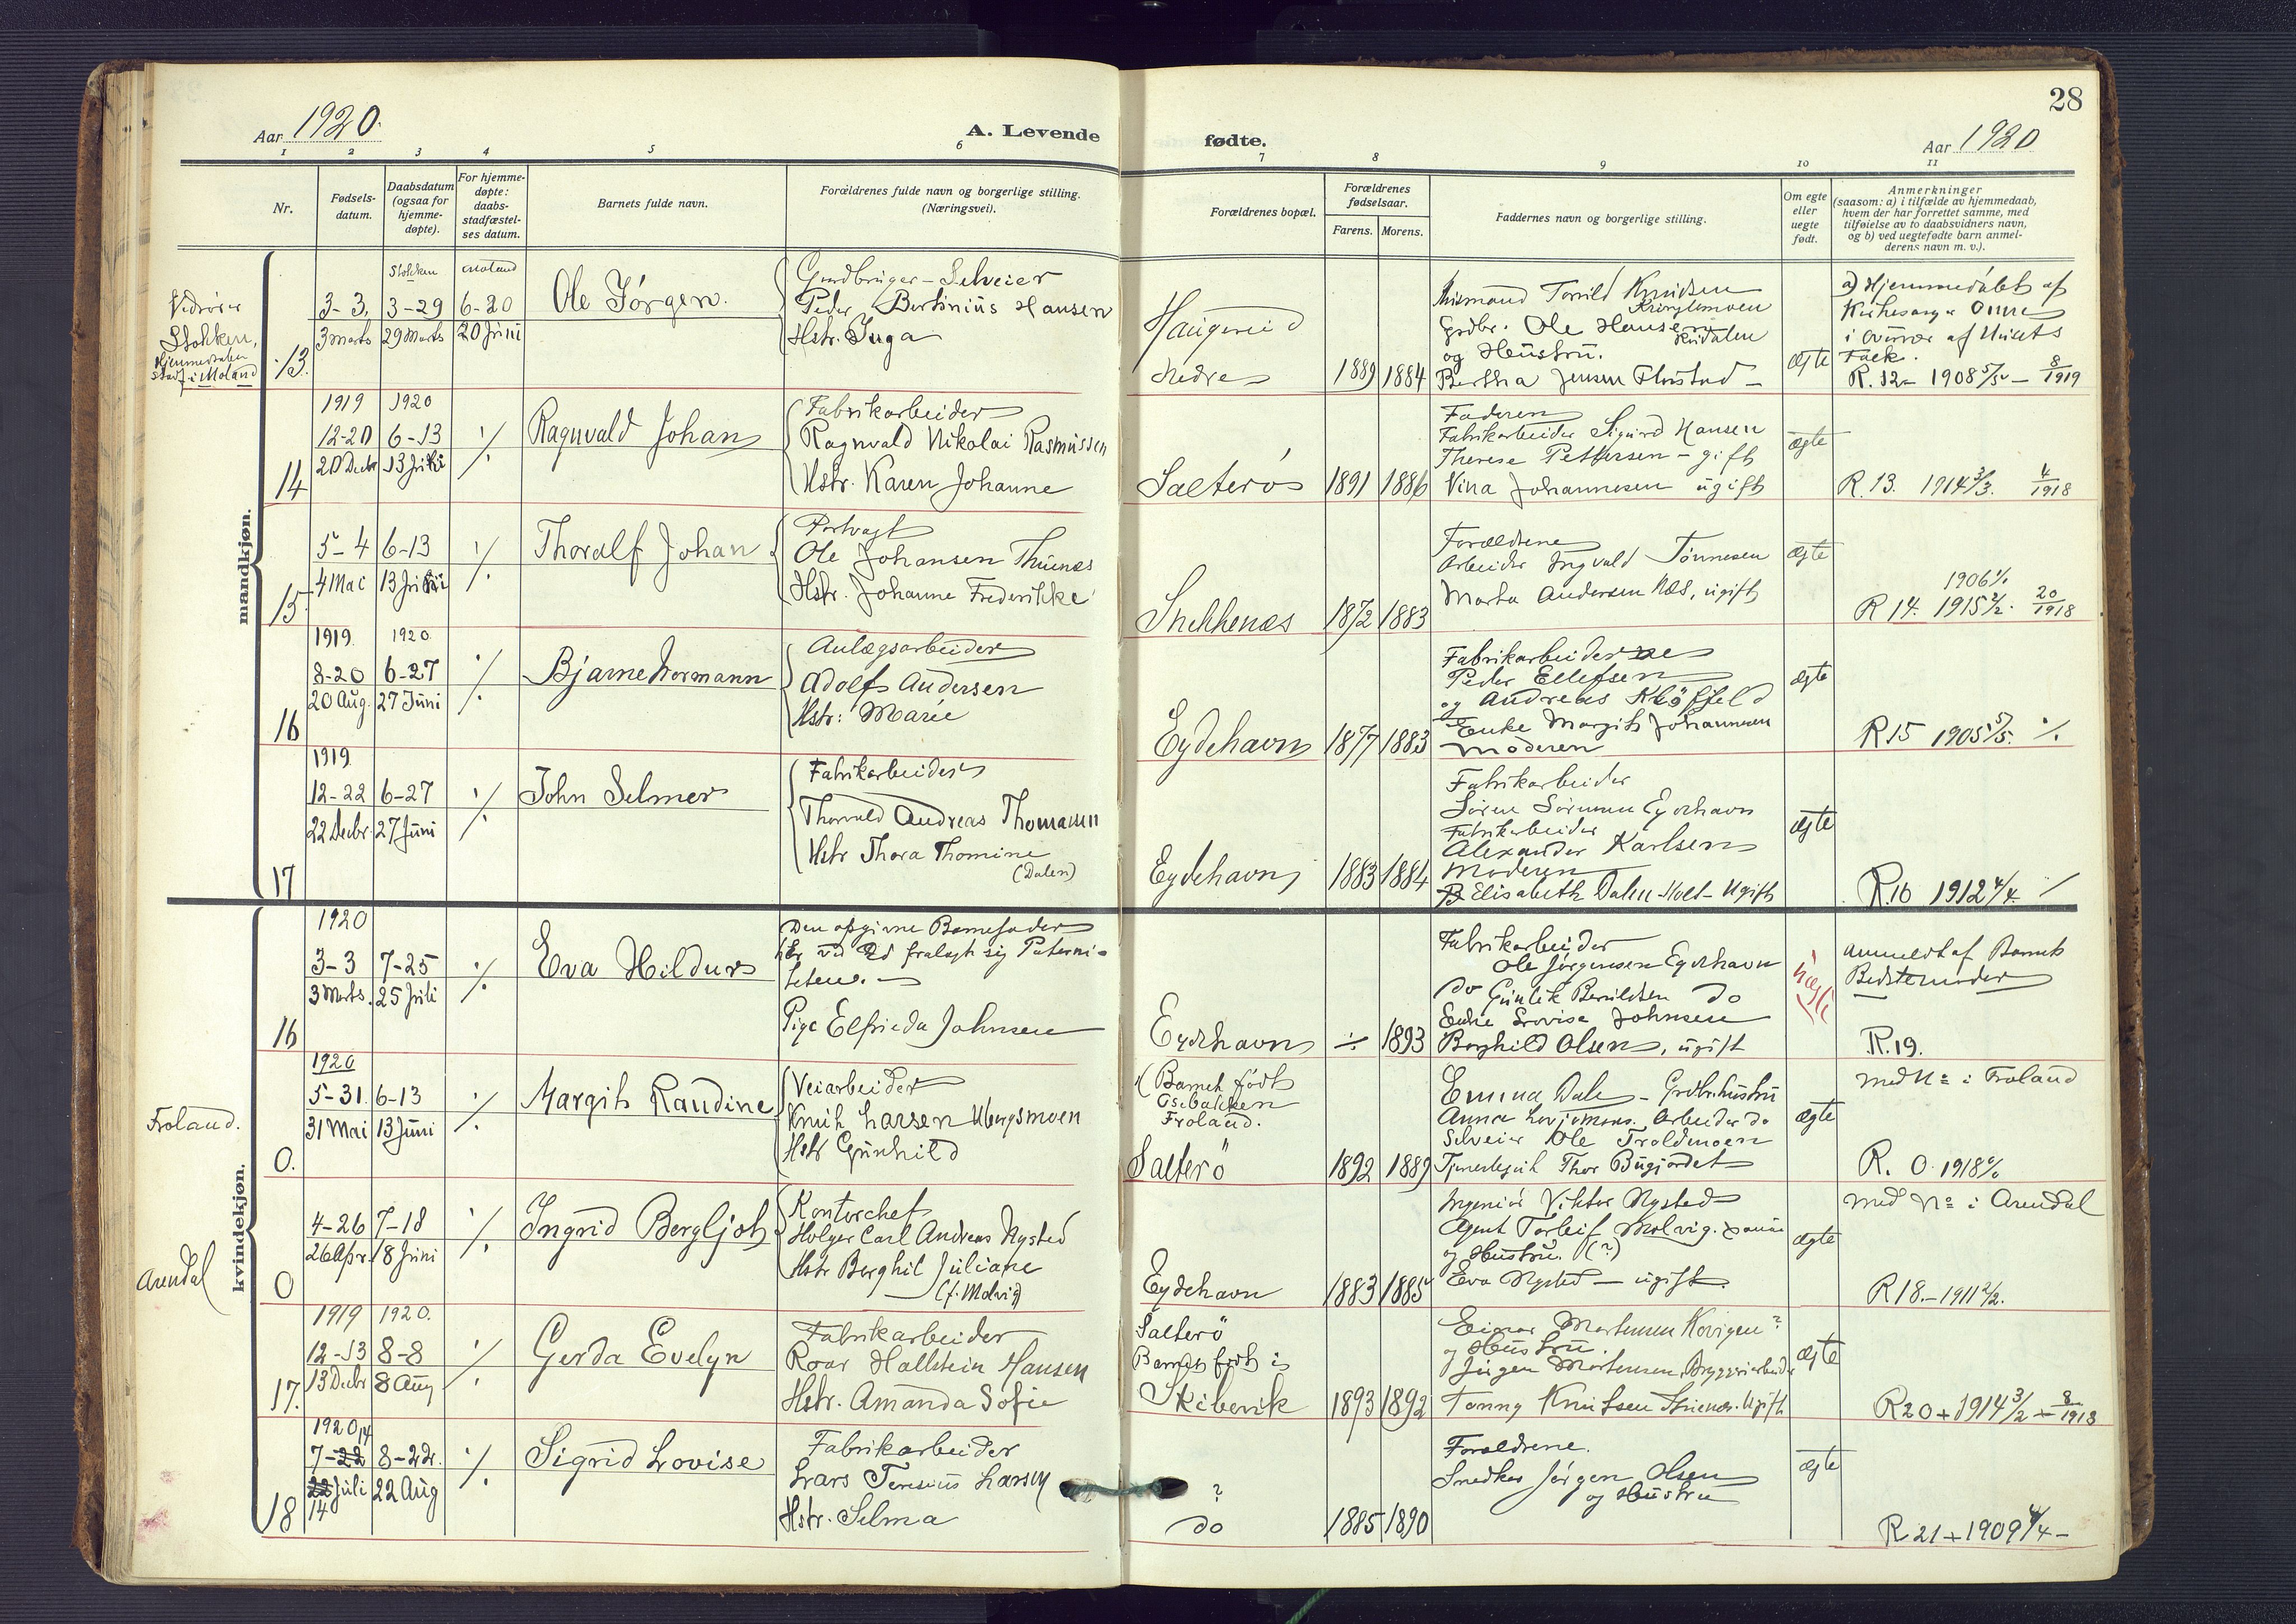 28
Aar 1920.
A. Levende
fødte.
Aar 1920
1 2 3 4 5 6 7 8 9 10 11
Nr.
Fødsels-
datum.
Daabsdatum
(ogsaa for
hjemme-
døpte).
For hjemme-
døpte:
daabs-
stadfæstel-
ses datum.
Barnets fulde navn.
Forældrenes fulde navn og borgerlige stilling.
(Næringsvei).
Forældrenes bopæl.
Forældrenes
fødselsaar.
Farens. Morens.
Faddernes navn og borgerlige stilling.
Om egte
eller
uegte
født.
Anmerkninger
(saasom: a) i tilfælde av hjemmedaab,
hvem der har forrettet samme, med
tilføielse av to daabsvidners navn,
og b) ved uegtefødte barn anmel-
derens navn m. v.).
mandkjøn.
Stokken,
i Moland
13.
3-3,
3 Marts
Stokken
3-29
29 Marts
6-20
20 Juni
Ole Jørgen.
Gardbruger - Selveier
Peder Bertinius Hansen
Hstr. Inga
Haugereid
Nedre
1889 1884
Torvild Knudsen
Grdbr. Ole Hansen
og Hustru.
Bertha Jensen Flostad
ægte
a) Hjemmedøbt af
Kirkesanger
i overvær af
R. 12 - 1908 5/5 - 8/1919
14
1919
12-20
20 Decbr
1920
6-13
13 Juni
./.
Ragnvald Johan
Fabrikarbeider
Ragnvald Nikolai Rasmussen
Hstr. Karen Johanne
Salterø
1891 1886
Faderen
Fabrikarbeider Sigurd Hansen
Therese Pettersen - gift
Vina Johannesen ugift
ægte
R. 13. 1914 3/3. 4/1918
15.
5-4
4 Mai
6-13
13 Juni
./.
Thoralf Johan
Portvagt
Ole Johansen Thuenæs
Hstr. Johanne Frederikke
Snekkenæs
1872 1883
Forældrene
Arbeider Ingvald Tønnesen
Marta Andersen Næs, ugift
ægte
1906 1/1
R 14. 1915 2/2. 20/1918
16
1919.
8-20
20 Aug.
1920.
6-27
27 Juni
./.
Bjarne Normann
Anlægsarbeider
Adolf Andersen
Hstr: Marie
Eydehavn
1877 1883
Fabrikarbeiderne
Peder Ellefsen
og Andreas Kløffeld
Enke Margit Johannesen
Moderen
ægte
R 15 1905 5/5. ./.
17
1919
12-22
22 Decbr.
6-27
27 Juni
./.
John Selmer
Fabrikarbeider
Thorvald Andreas Thomassen
Hstr Thora Thomine
(Dalen)
Eydehavn
1883 1884
Fabrikarbeider
Søren Sørensen Eydehavn
Fabrikarbeider
Alexander Karlsen
Moderen
Elisabeth Dalen - Holt - Ugift
ægte
R. 10 1912 4/4. /
kvindekjøn.
16
1920
3-3
3 Marts.
7-25
25 Juli
./.
Eva Hildur
Den opgivne Barnefader
har ved Ed fralagt sig Paterni-
teten. -
Pige Elfrieda Johnsen
Eydehavn
÷ 1893
Fabrikarbeider
Ole Jørgensen Eydehavn
do Gunlik Beruldsen do
Enke Lovise Johnsen
Borghild Olsen, ugift
uægte
Anmeldt af Barnets
Bedstemoder
R. 19.
Froland.
0.
1920
5-31.
31 Mai
6-13
13 Juni
./.
Margit Randine
Veiarbeider
Knut Larsen Ubergsmoen
Hstr Gunhild
Barnet født
Osebakken
Froland.
Salterø
1892 1889
Emma Dale - Grdbrhustru
Selveier Ole Troldmoen
Thor Bugjordet
ægte
med No i Froland
R. 0. 1918
Arendal
0
4-26
26 Apr.
7-18
18 Juni
./.
Ingrid Bergljot
Kontorchef
Holger Carl Andreas Nysted
Hstr Berghil Juliane
(f. Molvig)
Eydehavn
1883 1885
Ingeniør Viktor Nysted
Agent Torleif Molvig.
og Hustru. (?)
Eva Nysted - ugift.
ægte
med No i Arendal
R 18. - 1911 2/2.
17.
1919
12-13
13 Decbr
1920.
8-8
8 Aug
./.
Gerda Evelyn
Fabrikarbeider
Roar Hallstein Hansen
Hstr. Amanda Sofie
Salterø
Barnet født i
Skibevik
1893 1892
Einar Mortensen Kovigen?
og Hustru.
Jørgen Mortensen, Bryggeriarbeider
Tanny Knutsen Ugift
ægte
R 20 + 1914 3/2 + 8/1913
18
1920
14
7-22
22 Juli
14
8-22.
22 Aug
./.
Sigrid Lovise
Fabrikarbeider
Lars Teresius Larsen
Hstr. Selma
?
do
1885 1890
Forældrene.
Snedker Jørgen Olsen
og Hustru
ægte
R 21 + 1909 4/4 -